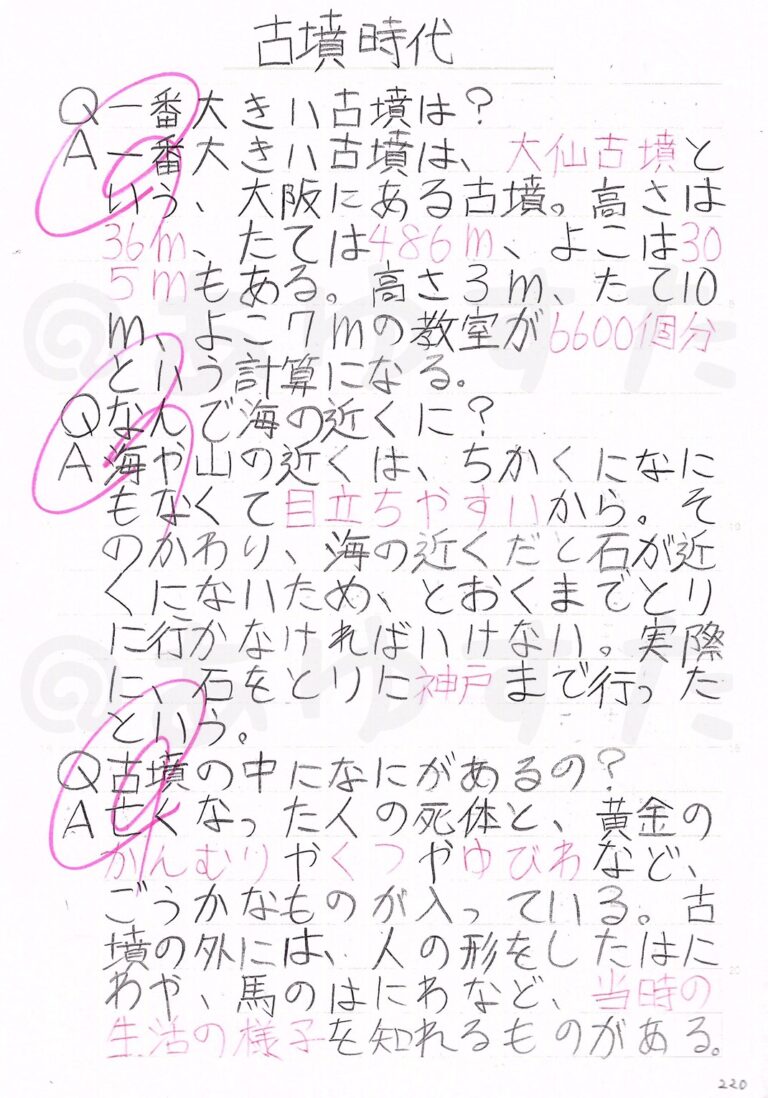 古墳時代
Q一番大きい古墳は？
A一番大きい古墳は、大仙古墳と
いう、大阪にある古墳。高さは
36m、たては486m、よこは30
5mもある。高さ3m、たて10
m、よこ7mの教室が6600個分
という計算になる。
Qなんで海の近くに？
A海や山の近くは、ちかくになに
もなくて目立ちやすいから。そ
のかわり、海の近くだと石が近
くにないため、とおくまでとり
に行かなければいけない。実際
に、石をとりに神戸まで行った
という。
Q古墳の中になにがあるの？
A亡くなった人の死体と、黄金の
かんむりやくつやゆびわなど、
ごうかなものが入っている。古
墳の外には、人の形をしたはに
わや、馬のはにわなど、当時の
生活の様子を知れるものがある。
220
@あゆすた
@あゆすた